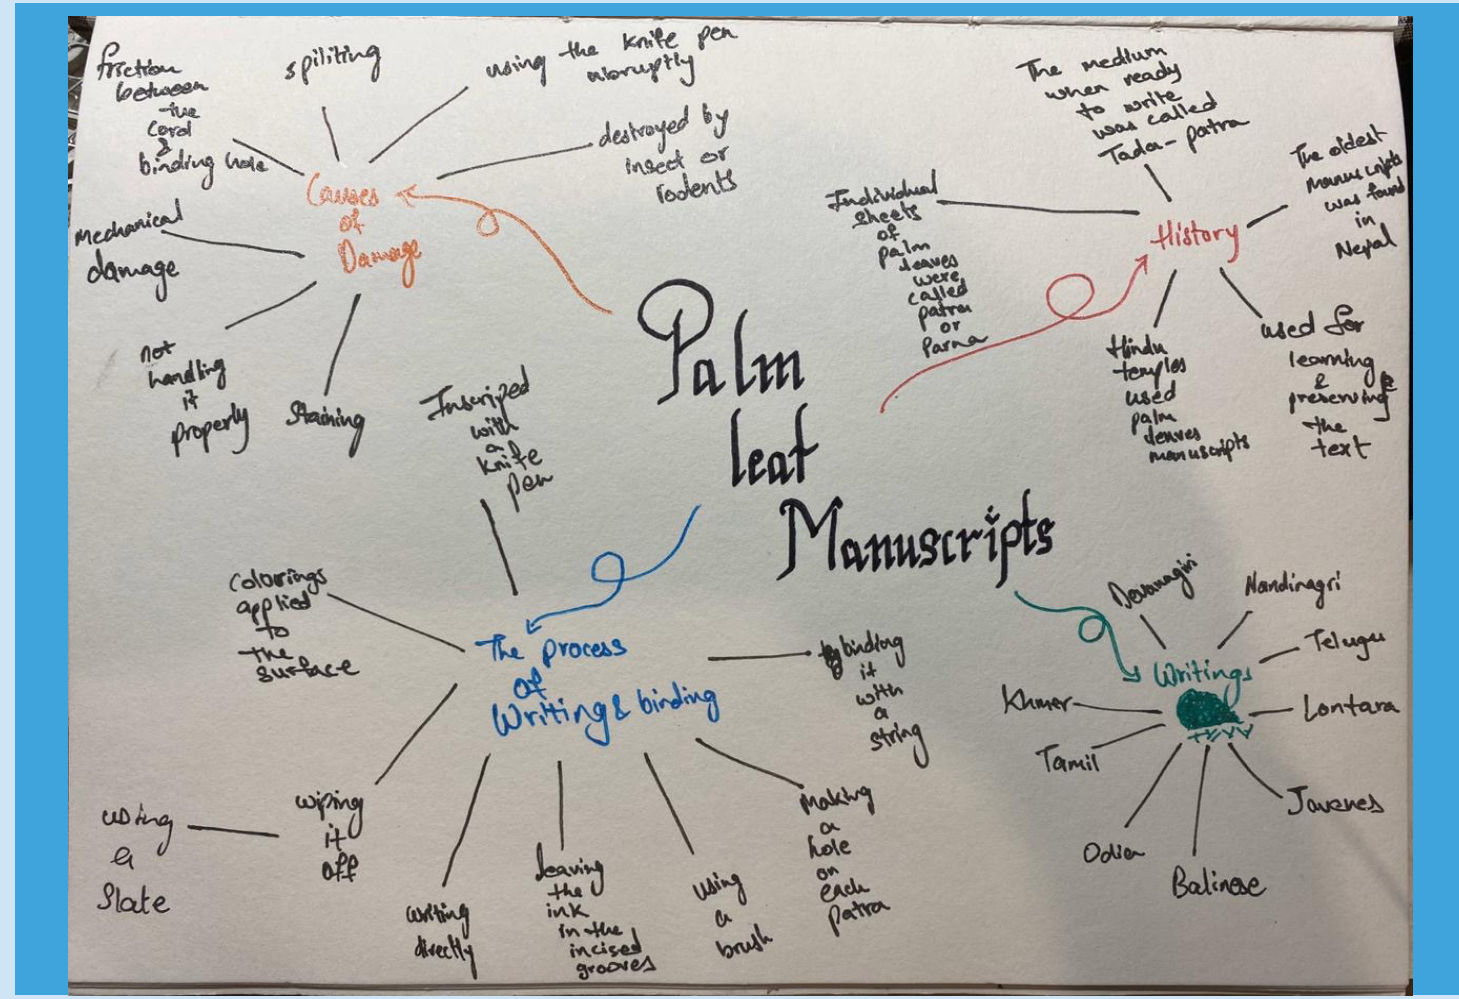 Palm
leaf
Manuscripts
Causes
of
Damage
friction
between
the
Cord
&
binding hole
spiliting
using the knife pen
abruptly
destroyed by
insect or
rodents
Mechanical
damage
not
handling
it
properly
Staining
History
Individual
sheets
of
palm
leaves
were
called
patra
or
Parna
The medium
when ready
to write
was called
Tada-patra
The oldest
Manuscripts
was found
in
Nepal
Hindu
temples
used
palm
leaves
manuscripts
used for
learning
&
preserving
the
text
The process
of
Writing & binding
Inscriped
with
a
knife
pen
Colorings
applied
to
the
surface
wiping
it
off
using
a
Slate
writing
directly
leaving
the
ink
in the
incised
grooves
using
a
brush
Making
a
hole
on
each
patra
binding
it
with
a
string
Writings
Devanagiri
Nandinagri
Telugu
Lontara
Javenes
Balinese
Odia
Tamil
Khmer